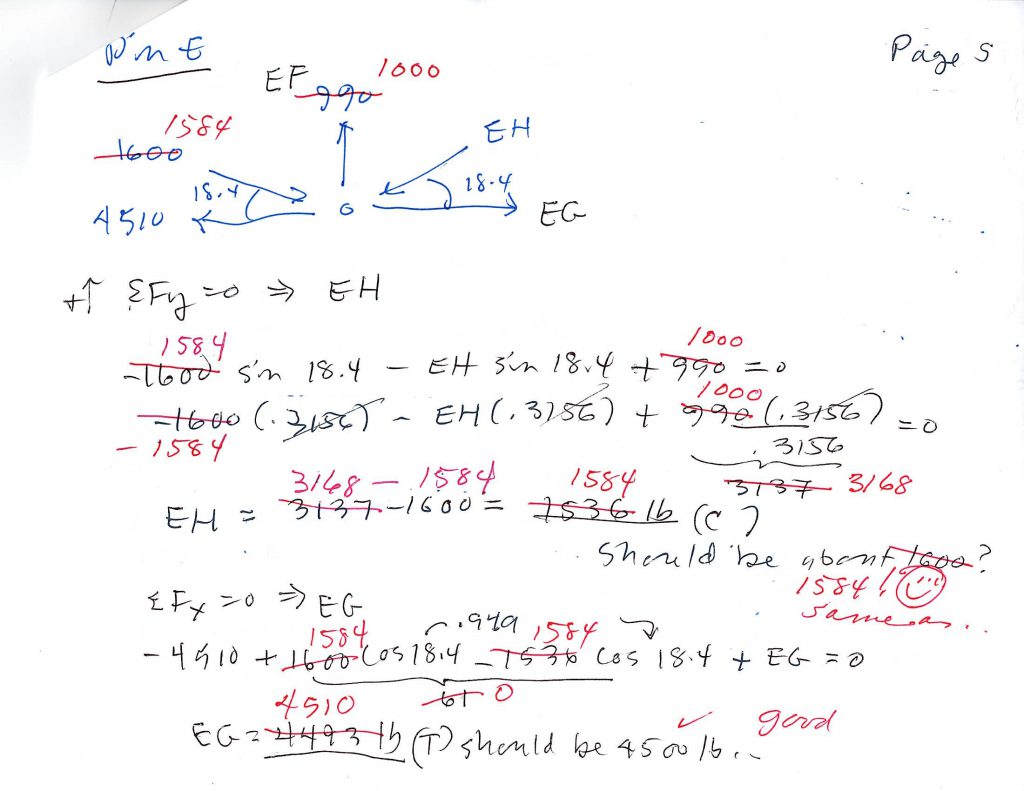 Pin E
Page 5
EF 990 1000
1584
1600
EH
18.4
18.4
4510
EG
+↑ ΣFy = 0 ⇒ EH
1584 1000
-1600 sin 18.4 - EH sin 18.4 + 990 = 0
1000
-1600 (.3156) - EH (.3156) + 990 (.3156) = 0
- 1584 .3156
3168 - 1584 1584 3137 3168
EH = 3137 - 1600 = 1536 lb (C)
should be about 1600?
1584!
same as..
ΣFx = 0 ⇒ EG
.949
1584 1584
-4510 + 1600 cos 18.4 - 1536 cos 18.4 + EG = 0
61 0
4510
EG = 4493 lb (T) should be 4500 lb.. ✓ good